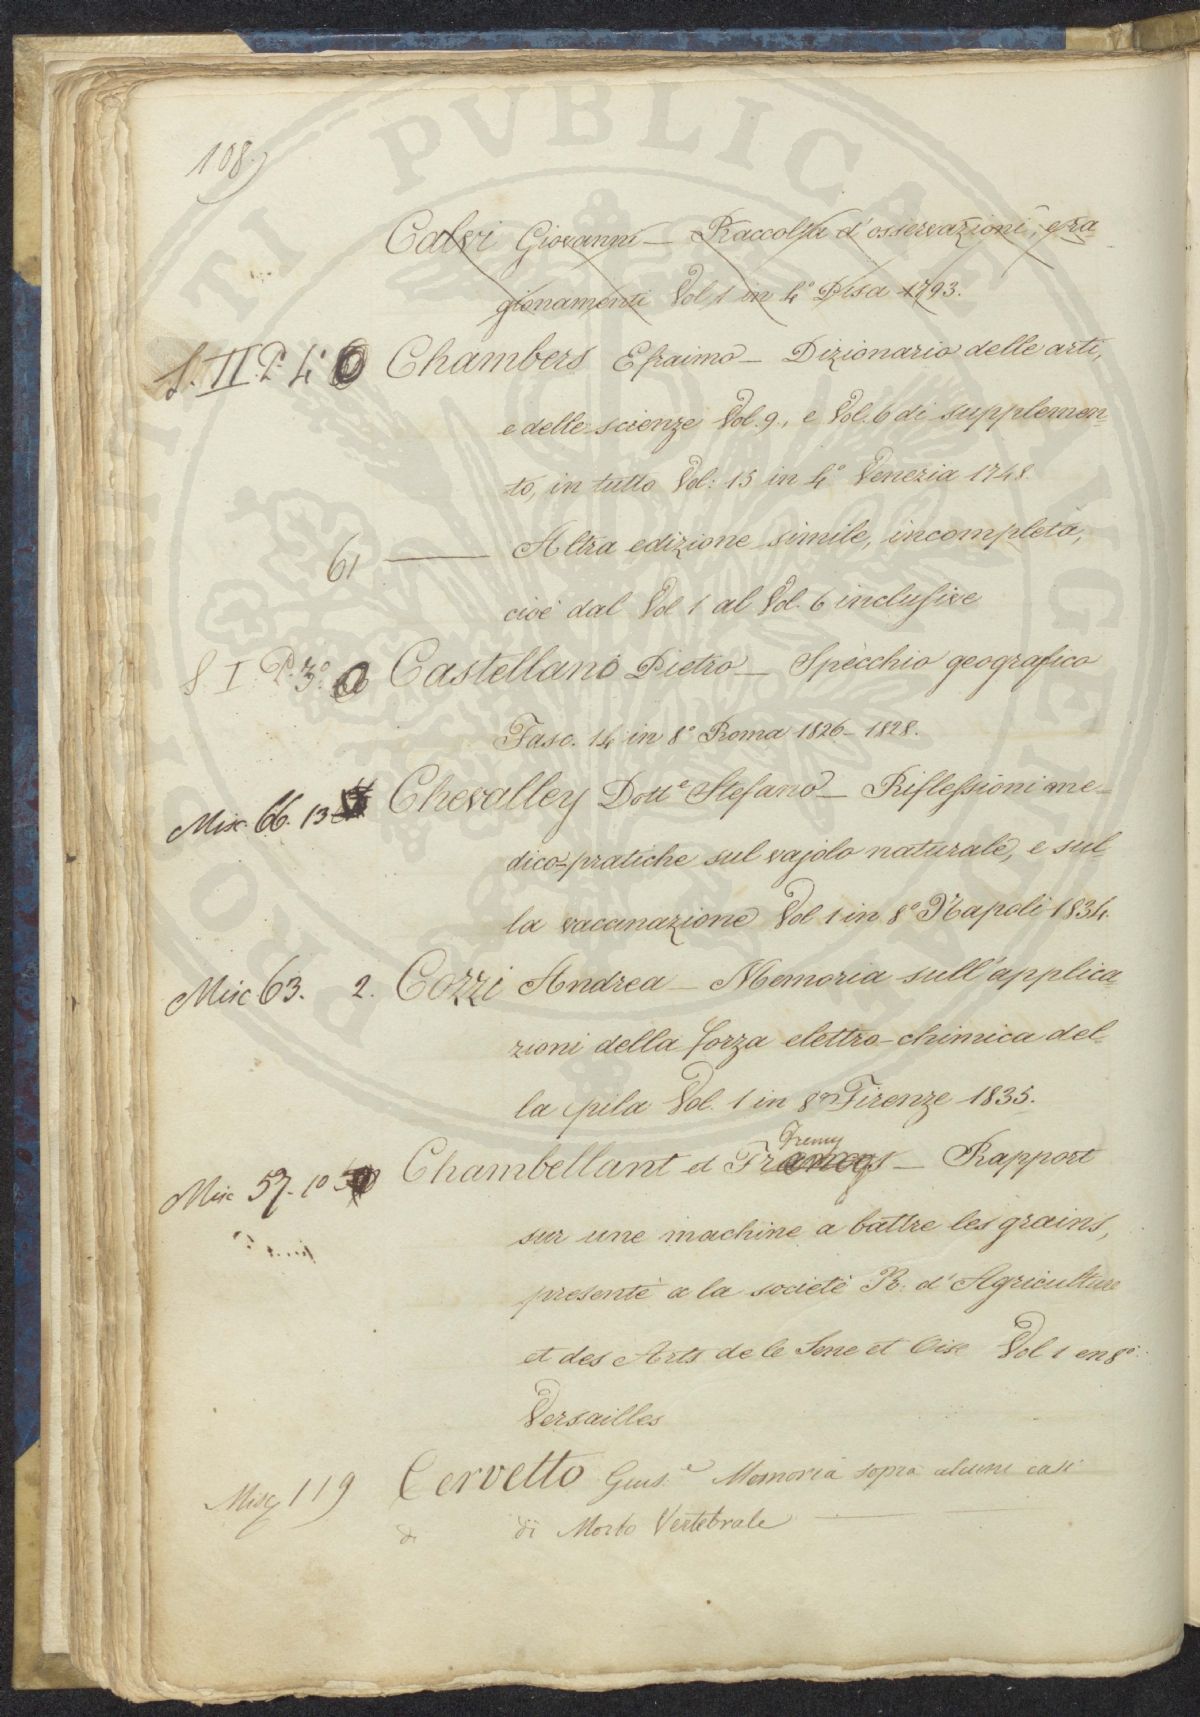 108)
Calvi Giovanni — Raccolta d'osservazioni, e ra-
gionamenti Vol 1 in 4° Pisa 1793.
S. II. P. 4° Chambers Efraimo — Dizionario delle arti,
e delle scienze Vol. 9., e Vol. 6 di supplemen-
to, in tutto Vol: 15 in 4° Venezia 1748.
61 ——— Altra edizione simile, incompleta,
cioè dal Vol 1 al Vol. 6 inclusive
S. I. P. 3° Castellano Pietro — Specchio geografico
Fasc. 14 in 8° Roma 1826 — 1828.
Misc. 66. 13 Chevalley Dott.e Stefano — Riflessioni me-
dico-pratiche sul vajolo naturale, e sul-
la vaccanazione Vol 1 in 8° Napoli 1834.
Misc 63. 2. Cozzi Andrea — Memoria sull'applica-
zioni della forza elettro-chimica del-
la pila Vol. 1 in 8° Firenze 1835.
Fremy
Misc 57. 10 Chambellant et — Rapport
sur une machine a battre les grains,
presentè a la societè R. d'Agriculture
et des Arts de le Sene et Oise Vol 1 en 8°.
Versailles
Misc 119 Cervetto Gius.e Memoria sopra alcuni casi
di di Morbo Vertebrale ———
PROSPERITATI PVBLICAE AVGENDAE